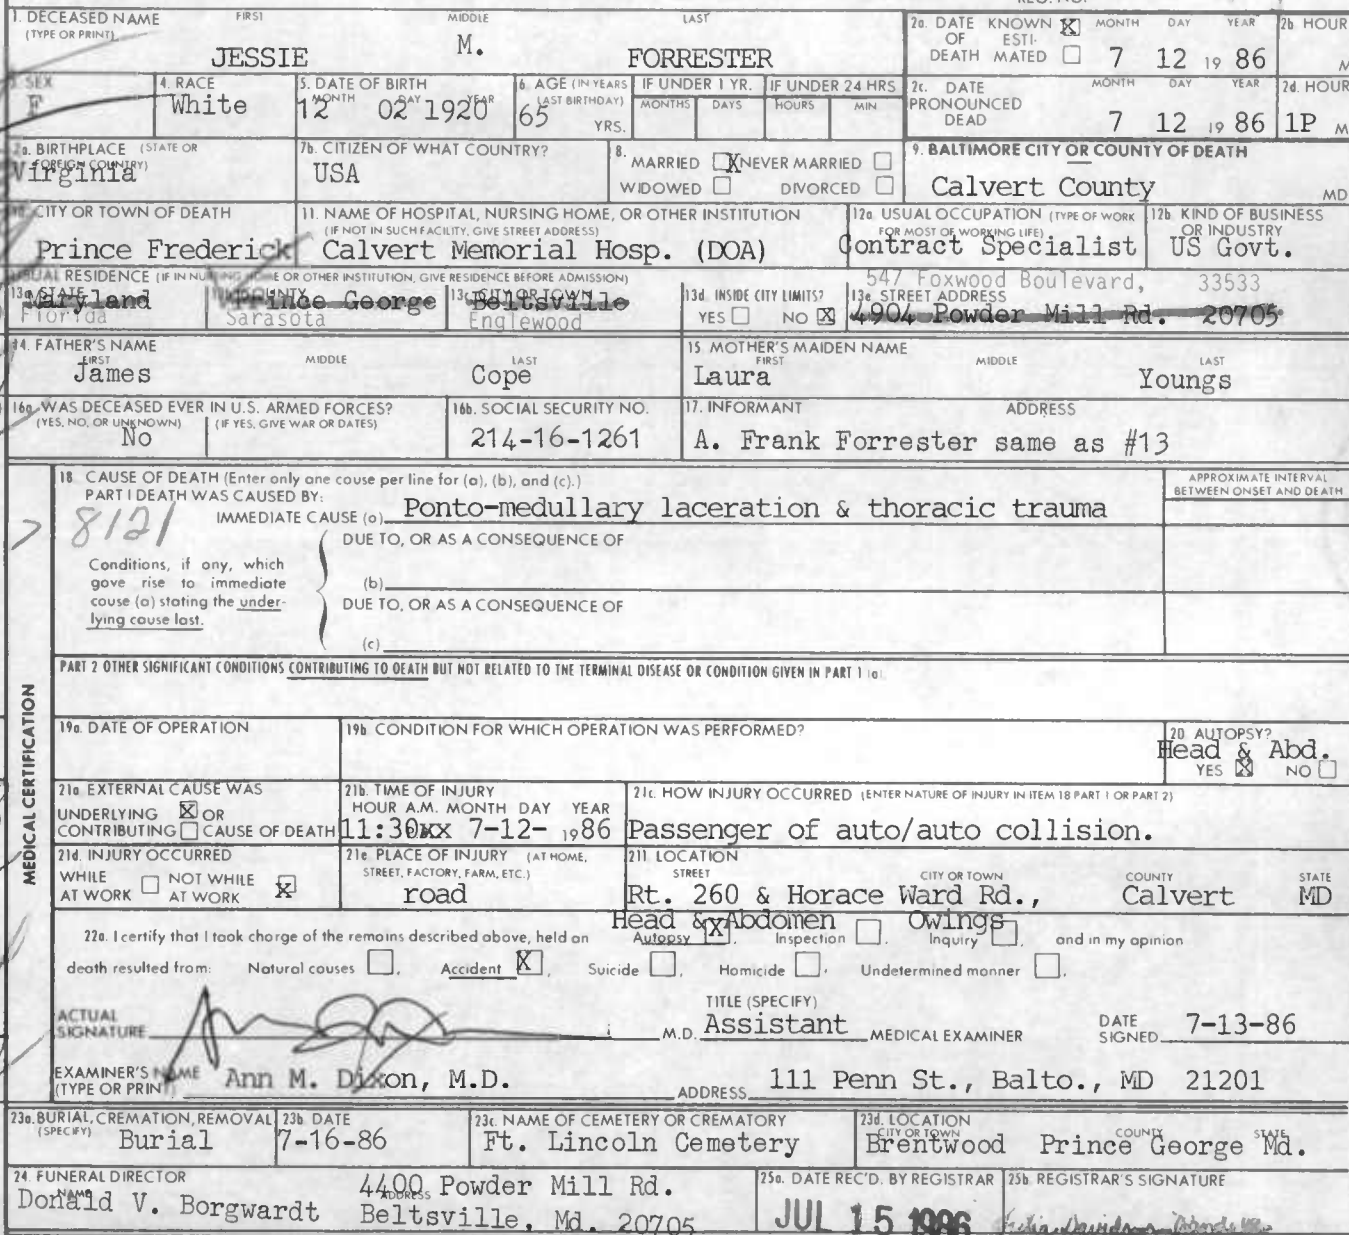 1. DECEASED NAME (TYPE OR PRINT) FIRST MIDDLE LAST
JESSIE M. FORRESTER
2a. DATE OF DEATH KNOWN X ESTIMATED MONTH DAY YEAR 2b HOUR
7 12 19 86 M
3 SEX F
4. RACE White
5. DATE OF BIRTH MONTH DAY YEAR
12 02 1920
6. AGE (IN YEARS LAST BIRTHDAY) 65 YRS.
IF UNDER 1 YR. MONTHS DAYS
IF UNDER 24 HRS HOURS MIN
2c. DATE PRONOUNCED DEAD MONTH DAY YEAR 2d. HOUR
7 12 19 86 1P M
7a. BIRTHPLACE (STATE OR FOREIGN COUNTRY) Virginia
7b. CITIZEN OF WHAT COUNTRY? USA
8. MARRIED X NEVER MARRIED
WIDOWED DIVORCED
9. BALTIMORE CITY OR COUNTY OF DEATH
Calvert County MD
10. CITY OR TOWN OF DEATH
Prince Frederick
11. NAME OF HOSPITAL, NURSING HOME, OR OTHER INSTITUTION
(IF NOT IN SUCH FACILITY, GIVE STREET ADDRESS)
Calvert Memorial Hosp. (DOA)
12a USUAL OCCUPATION (TYPE OF WORK FOR MOST OF WORKING LIFE)
Contract Specialist
12b. KIND OF BUSINESS OR INDUSTRY
US Govt.
USUAL RESIDENCE (IF IN NURSING HOME OR OTHER INSTITUTION, GIVE RESIDENCE BEFORE ADMISSION)
13a STATE Maryland Florida
COUNTY Prince George Sarasota
13c CITY OR TOWN Beltsville Englewood
13d INSIDE CITY LIMITS? YES NO X
13e STREET ADDRESS
547 Foxwood Boulevard, 33533
4904 Powder Mill Rd. 20705
14. FATHER'S NAME FIRST MIDDLE LAST
James Cope
15 MOTHER'S MAIDEN NAME FIRST MIDDLE LAST
Laura Youngs
16a WAS DECEASED EVER IN U.S. ARMED FORCES?
(YES, NO, OR UNKNOWN) (IF YES, GIVE WAR OR DATES)
No
16b. SOCIAL SECURITY NO.
214-16-1261
17. INFORMANT ADDRESS
A. Frank Forrester same as #13
18 CAUSE OF DEATH (Enter only one cause per line for (a), (b), and (c).)
PART I DEATH WAS CAUSED BY:
APPROXIMATE INTERVAL BETWEEN ONSET AND DEATH
8121
IMMEDIATE CAUSE (a) Ponto-medullary laceration & thoracic trauma
DUE TO, OR AS A CONSEQUENCE OF
Conditions, if any, which
gave rise to immediate
cause (a) stating the under-
lying cause last.
(b)
DUE TO, OR AS A CONSEQUENCE OF
(c)
PART 2 OTHER SIGNIFICANT CONDITIONS CONTRIBUTING TO DEATH BUT NOT RELATED TO THE TERMINAL DISEASE OR CONDITION GIVEN IN PART 1 (a)
MEDICAL CERTIFICATION
19a. DATE OF OPERATION
19b CONDITION FOR WHICH OPERATION WAS PERFORMED?
20 AUTOPSY?
Head & Abd.
YES X NO
21a EXTERNAL CAUSE WAS
UNDERLYING X OR
CONTRIBUTING CAUSE OF DEATH
21b. TIME OF INJURY
HOUR A.M. MONTH DAY YEAR
11:30xx 7-12- 1986
21c. HOW INJURY OCCURRED (ENTER NATURE OF INJURY IN ITEM 18 PART 1 OR PART 2)
Passenger of auto/auto collision.
21d. INJURY OCCURRED
WHILE AT WORK NOT WHILE AT WORK X
21e PLACE OF INJURY (AT HOME, STREET, FACTORY, FARM, ETC.)
road
21f. LOCATION
STREET CITY OR TOWN COUNTY STATE
Rt. 260 & Horace Ward Rd., Calvert MD
Head & Abdomen Owings
22a. I certify that I took charge of the remains described above, held an Autopsy X, Inspection , Inquiry , and in my opinion
death resulted from: Natural causes , Accident X, Suicide , Homicide , Undetermined manner .
ACTUAL SIGNATURE
M.D.
TITLE (SPECIFY)
Assistant MEDICAL EXAMINER
DATE SIGNED 7-13-86
EXAMINER'S NAME (TYPE OR PRINT) Ann M. Dixon, M.D.
ADDRESS 111 Penn St., Balto., MD 21201
23a. BURIAL, CREMATION, REMOVAL (SPECIFY) Burial
23b DATE 7-16-86
23c. NAME OF CEMETERY OR CREMATORY
Ft. Lincoln Cemetery
23d. LOCATION
CITY OR TOWN COUNTY STATE
Brentwood Prince George Md.
24. FUNERAL DIRECTOR
NAME Donald V. Borgwardt
ADDRESS 4400 Powder Mill Rd.
Beltsville, Md. 20705
25a. DATE REC'D. BY REGISTRAR
JUL 15 1986
25b REGISTRAR'S SIGNATURE